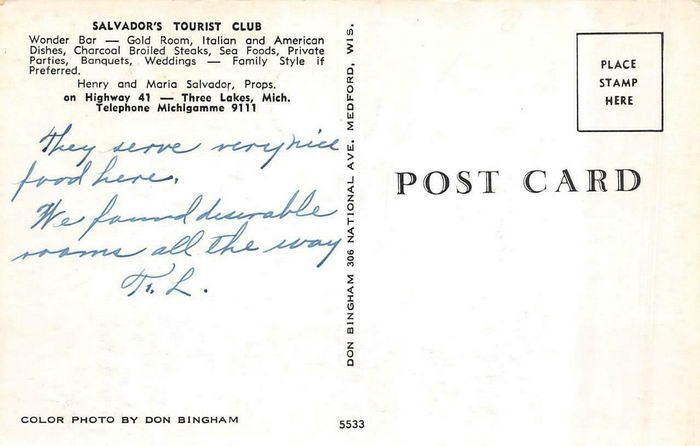 SALVADOR'S TOURIST CLUB
Wonder Bar — Gold Room, Italian and American
Dishes, Charcoal Broiled Steaks, Sea Foods, Private
Parties, Banquets, Weddings — Family Style if
Preferred.
Henry and Maria Salvador, Props.
on Highway 41 — Three Lakes, Mich.
Telephone Michigamme 9111
They serve very nice
food here.
We found desirable
rooms all the way
T. L.
COLOR PHOTO BY DON BINGHAM
DON BINGHAM 306 NATIONAL AVE. MEDFORD, WIS.
5533
PLACE
STAMP
HERE
POST CARD